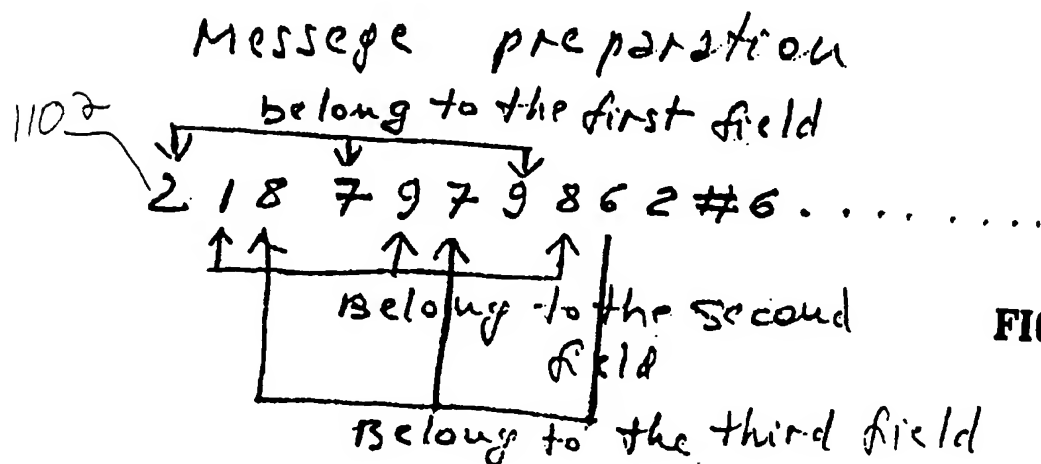 Messege preparation
belong to the first field
1102
2 1 8 7 9 7 9 8 6 2 # 6 . . . . . . . . .
Belong to the second
field
FIG
Belong to the third field